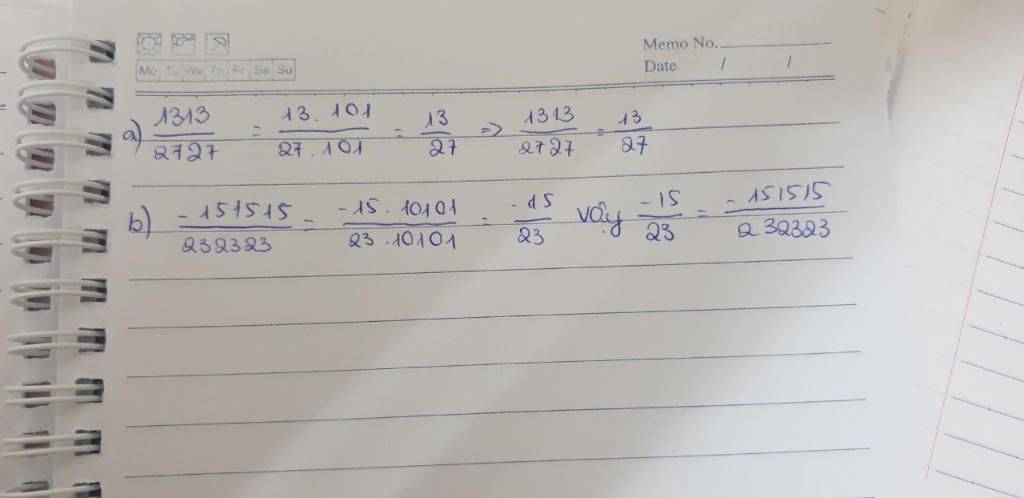 Memo No.
Date / /
Mo Tu We Th Fr Sa Su
a) 1313/2727 = 13.101/27.101 = 13/27 => 1313/2727 = 13/27
b) -151515/232323 = -15.10101/23.10101 = -15/23 vậy -15/23 = -151515/232323